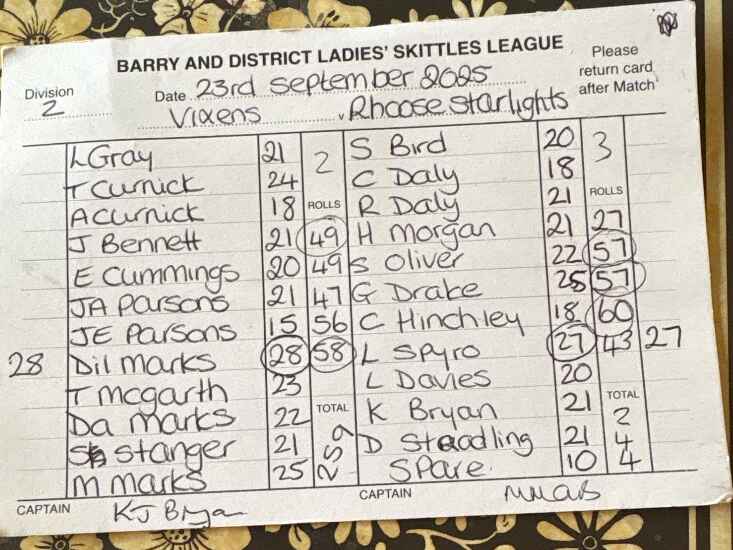 BARRY AND DISTRICT LADIES' SKITTLES LEAGUE
Please return card after Match
Division 2
Date 23rd September 2025
Vixens v Rhoose Starlights
L Gray 21 2 S Bird 20 3
T Curnick 24 C Daly 18
A Curnick 18 ROLLS R Daly 21 ROLLS
J Bennett 21 49 H Morgan 21 27
E Cummings 20 49 S Oliver 22 57
JA Parsons 21 47 G Drake 25 57
JE Parsons 15 56 C Hinchley 18 60
28 Dil Marks 28 58 L Spyro 27 43 27
T McGarth 23 L Davies 20
Da Marks 22 TOTAL K Bryan 21 TOTAL
S Stanger 21 259 D Steadling 21 244
M Marks 25 Spare 10
CAPTAIN KJ Bryan CAPTAIN